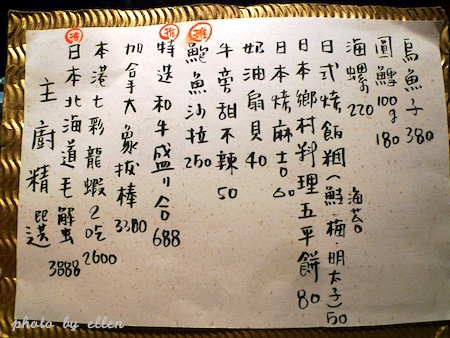 烏魚子 380
圓鱈 100g 180
海螺 220
日式烤飯糰(鮭·梅·明太子) 50
海苔
日本鄉村料理五平餅 80
日本烤麻吉 60
奶油扇貝 40
牛旁甜不辣 50
推 鮑魚沙拉 250
推 特選和牛盛り合 688
加拿大象拔棒 3380
本港七彩龍蝦2吃 2600
日本北海道毛蟹 3888
主廚精選
photo by ellen